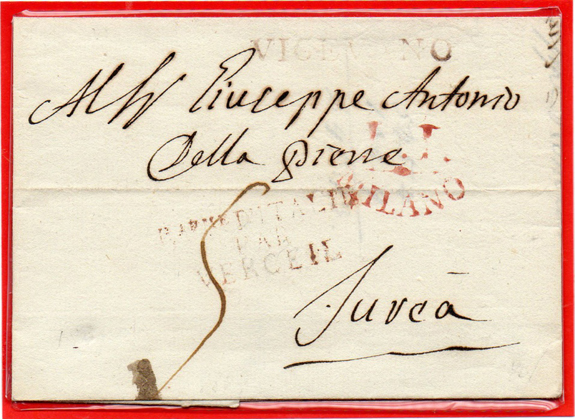 VIGEVANO
Al Sr Giuseppe Antonio
Della Pierre
L.I.
MILANO
D'ITALIE
PAR
VERCEIL
5
Jurea